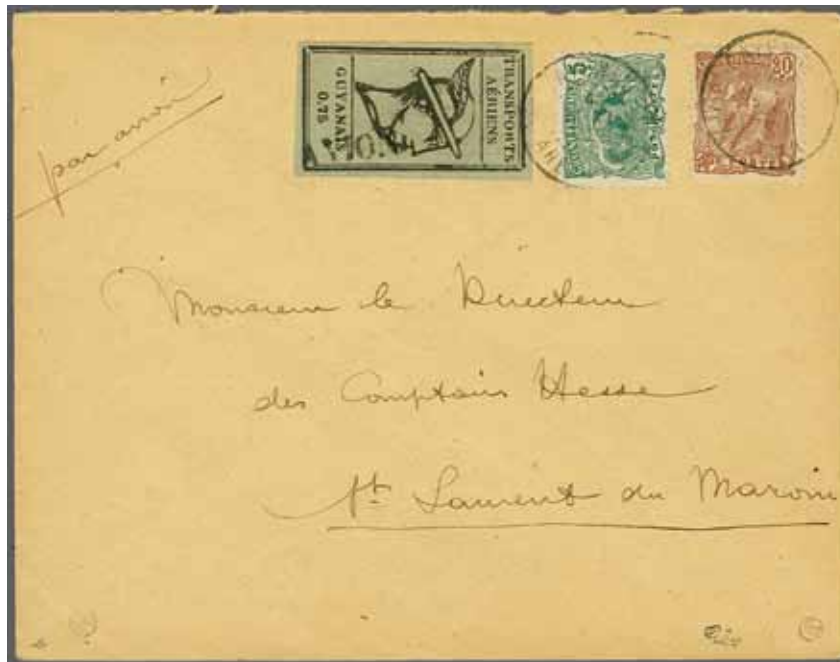 par avion
TRANSPORTS
AÉRIENS
GUYANAIS
0.75
5
20
Monsieur le Directeur
des Comptoirs Hesse
St Laurent du Maroni